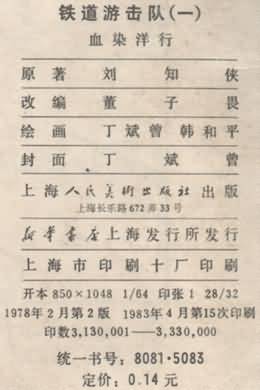 铁道游击队(一)
血染洋行
原著 刘知侠
改编 董子畏
绘画 丁斌曾 韩和平
封面 丁斌曾
上海人民美術出版社出版
上海长乐路672弄33号
新华書店上海发行所发行
上海市印刷十厂印刷
开本850×1048 1/64 印张1 28/32
1978年2月第2版 1983年4月第15次印刷
印数3,130,001—3,330,000
统一书号: 8081·5083
定价: 0.14元